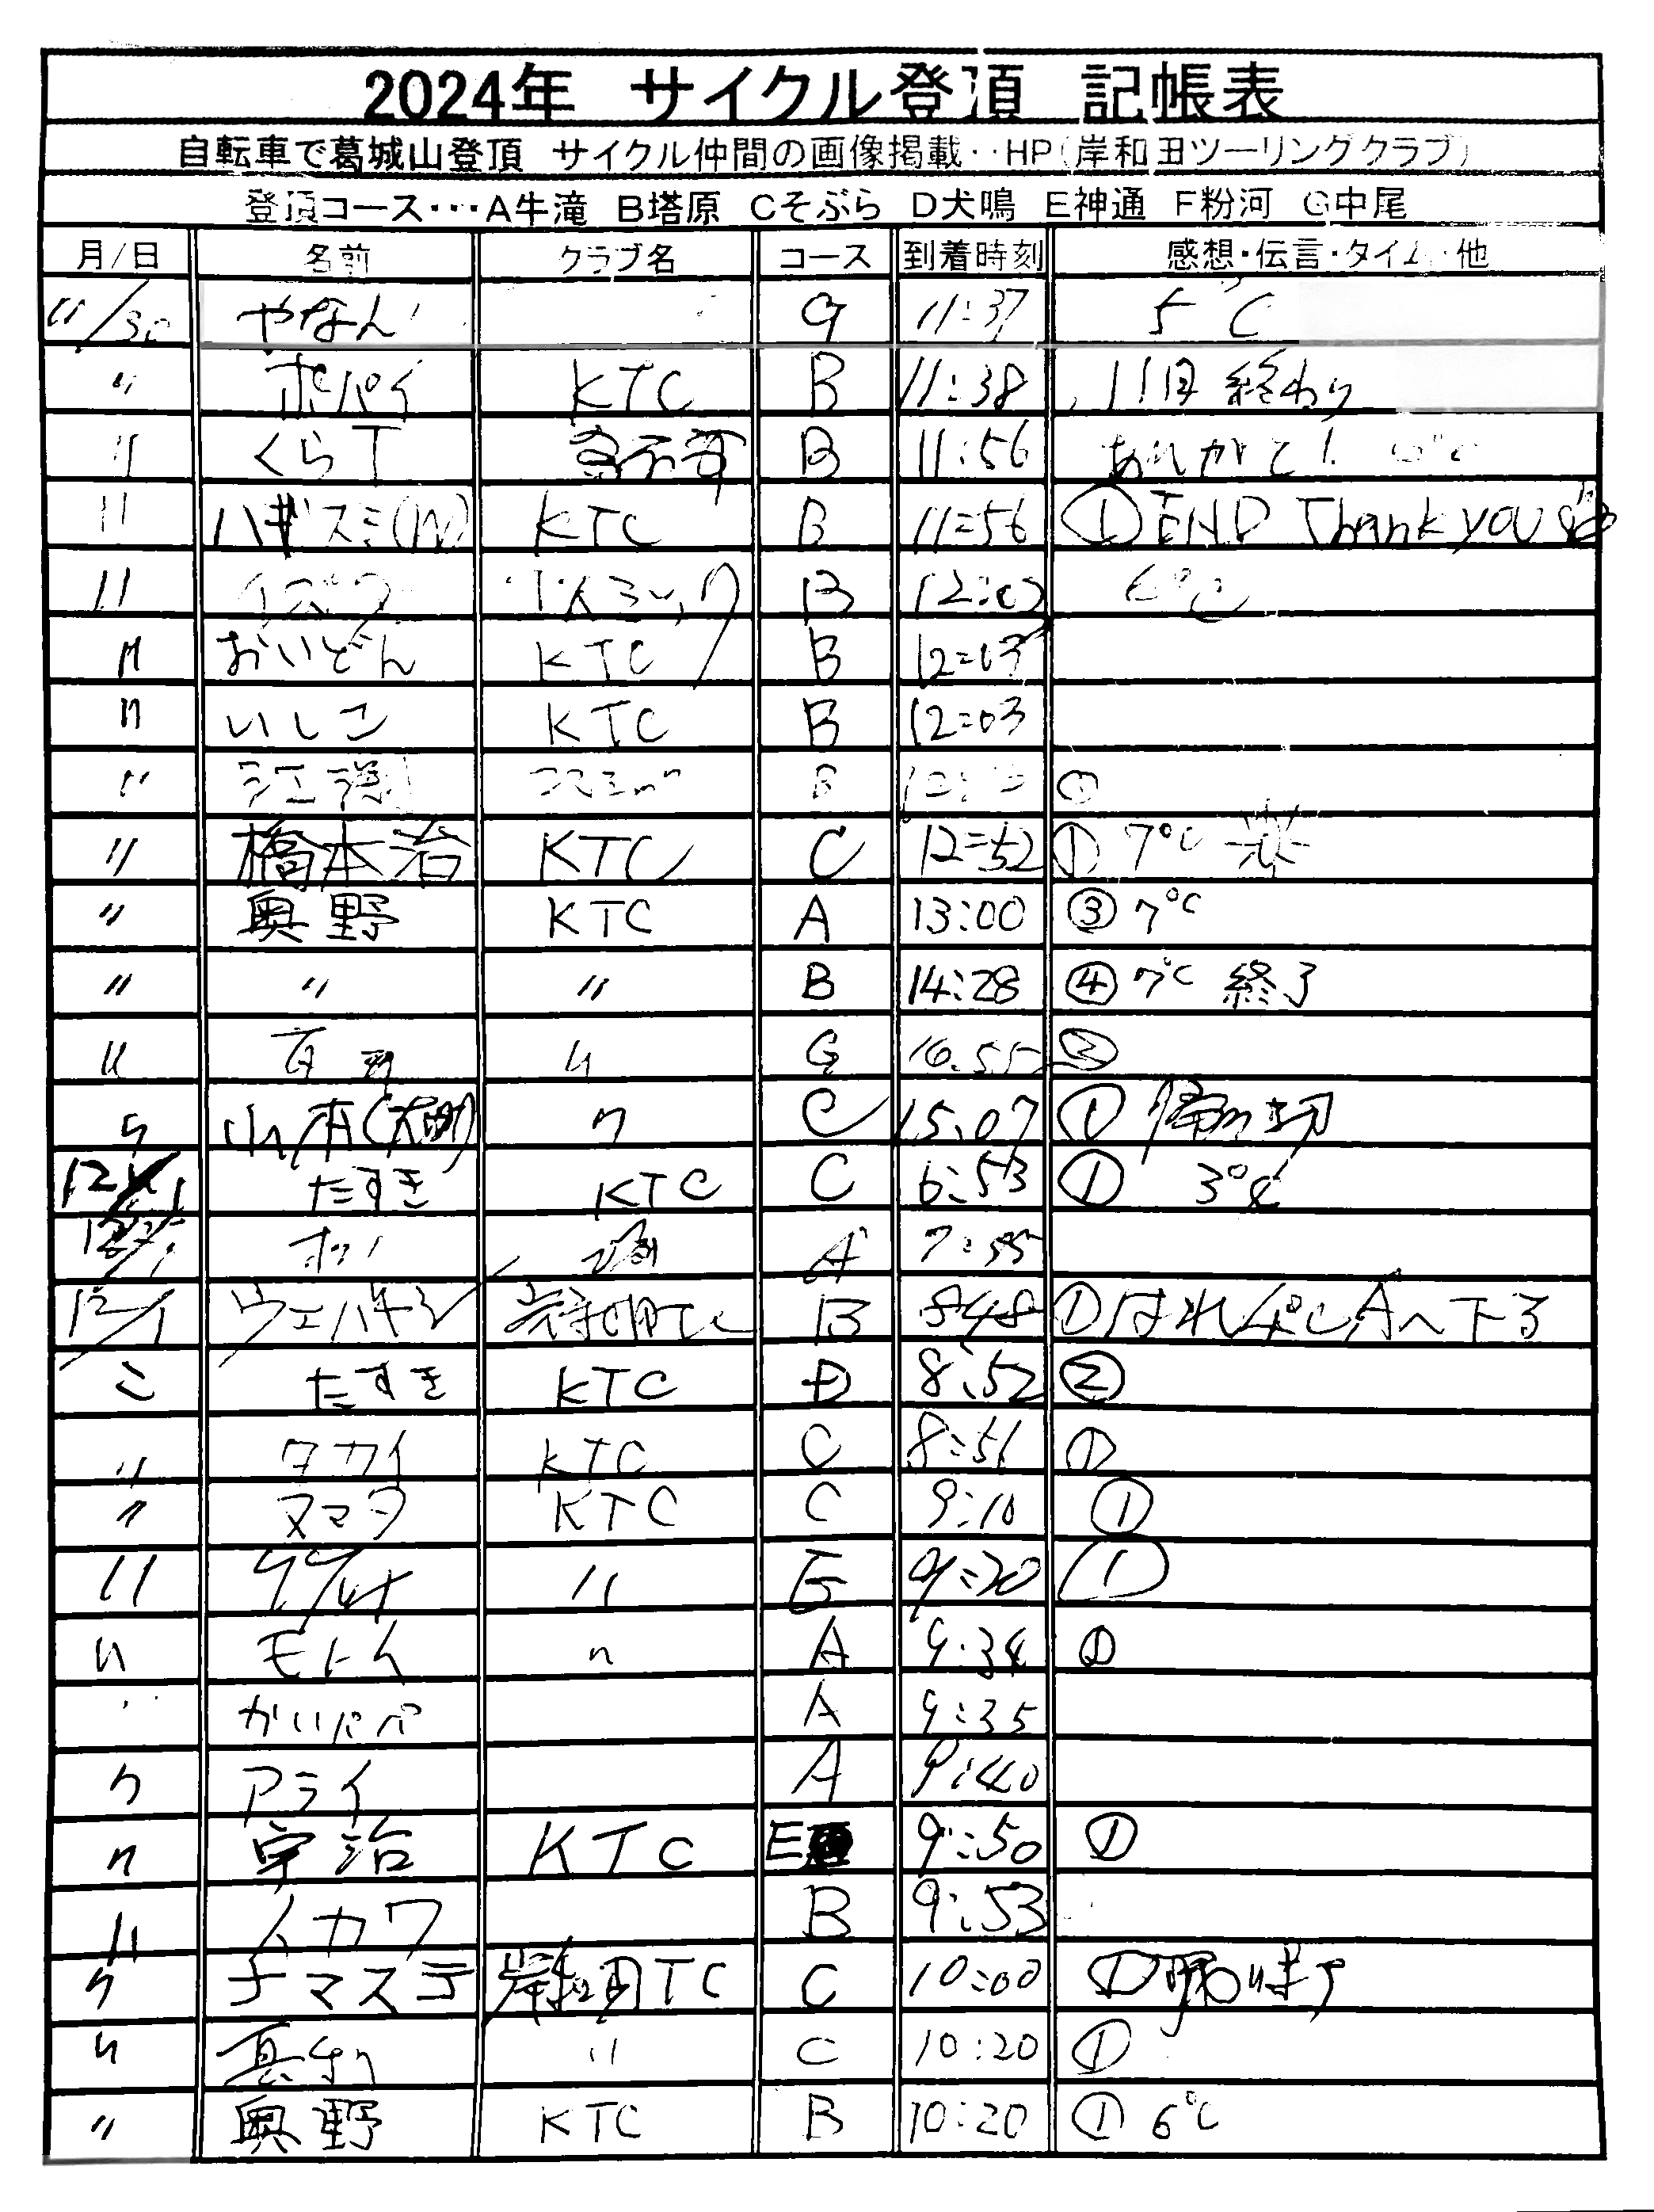 2024年 サイクル登頂 記帳表
自転車で葛城山登頂 サイクル仲間の画像掲載‥HP(岸和田ツーリングクラブ)
登頂コース…A牛滝 B塔原 Cそぶら D犬鳴 E神通 F粉河 G中尾
月/日 名前 クラブ名 コース 到着時刻 感想・伝言・タイム・他
11/30 やなん G 11:37 5℃
〃 ポパイ KTC B 11:38 11月終わり
〃 くらT B 11:56 ありがと!
〃 ハギスミ KTC B 11=56 ① END Thank you
〃 B 12:03 6℃
〃 おいどん KTC B 12=03
〃 いしこ KTC B 12=03
〃 B
〃 橋本治 KTC C 12=52 ① 7℃
〃 奥野 KTC A 13:00 ③ 7℃
〃 〃 〃 B 14:28 ④ 7℃ 終了
〃 〃 G
〃 山本 〃 C 15:07 ①
12/1 たすき KTC C 6:53 ① 3℃
12/1 A 7:55
12/1 岸和田TC B 848 ① はれ 4℃ Aへ下る
〃 たすき KTC D 8:52 ②
〃 タカイ KTC C 8:51 ①
〃 ヌマタ KTC C 9:10 ①
〃 〃 E 9:20 ①
〃 モトム 〃 A 9:34 ①
〃 かいパパ A 9:35
〃 アライ A 9:40
〃 宇治 KTC E 9:50 ①
〃 イカワ B 9:53
〃 ナマステ 岸和田TC C 10:00 ①
〃 〃 C 10:20 ①
〃 奥野 KTC B 10:20 ① 6℃